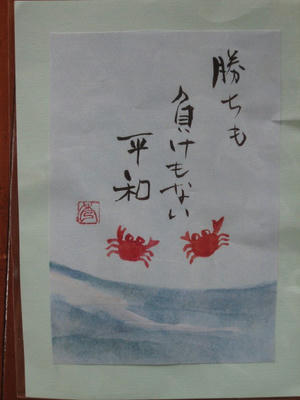 勝ちも
負けもない
平和